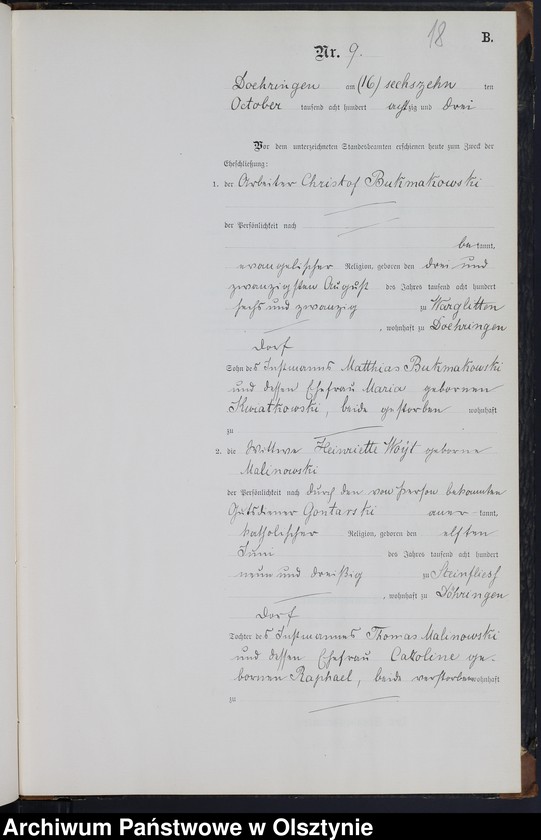 18
B.
Nr. 9.
Doehringen am (16) sechszehn ten
October tausend acht hundert achtzig und drei
Vor dem unterzeichneten Standesbeamten erschienen heute zum Zweck der
Eheschließung:
1. der Arbeiter Christof Bukmakowski
der Persönlichkeit nach
be kannt,
evangelischer Religion, geboren den drei und
zwanzigsten August des Jahres tausend acht hundert
sechs und zwanzig zu Warglitten
, wohnhaft zu Doehringen
Dorf
Sohn des Instmanns Matthias Bukmakowski
und dessen Ehefrau Maria gebornen
Kwiatkowski, beide gestorben wohnhaft
zu
2. die Wittwe Heinriette Woyt geborne
Malinowski
der Persönlichkeit nach durch den von Person bekannten
Gutsdiener Gontarski aner kannt,
katholischer Religion, geboren den elften
Juni des Jahres tausend acht hundert
neun und dreißig zu Steinfliess
, wohnhaft zu Döhringen
Dorf
Tochter des Instmannes Thomas Malinowski
und dessen Ehefrau Catoline ge-
bornen Raphael, beide verstorben wohnhaft
zu
Archiwum Państwowe w Olsztynie